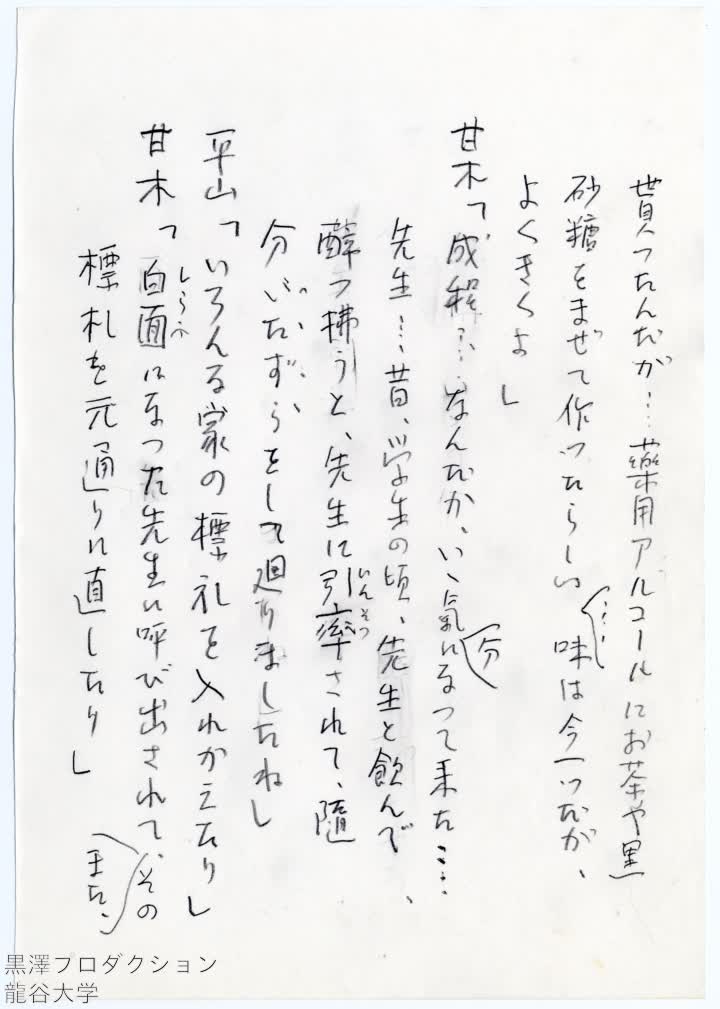 貰つたんだが…藥用アルコールにお茶や黒
砂糖をまぜて作つたらしい…味は今一つだが、
よくきくよ」
甘木「成程…なんだか、いゝ氣分になつて来た……
先生…昔、学生の頃、先生と飲んで、
醉つ拂うと、先生に引率されて、隨
いんそつ
分、いたずらをして廻りましたね」
平山「いろんな家の標札を入れかえたり」
甘木「白面になつた先生に呼び出されて、また、その
しらふ
標札を元通りに直したり」
黒澤プロダクション
龍谷大学